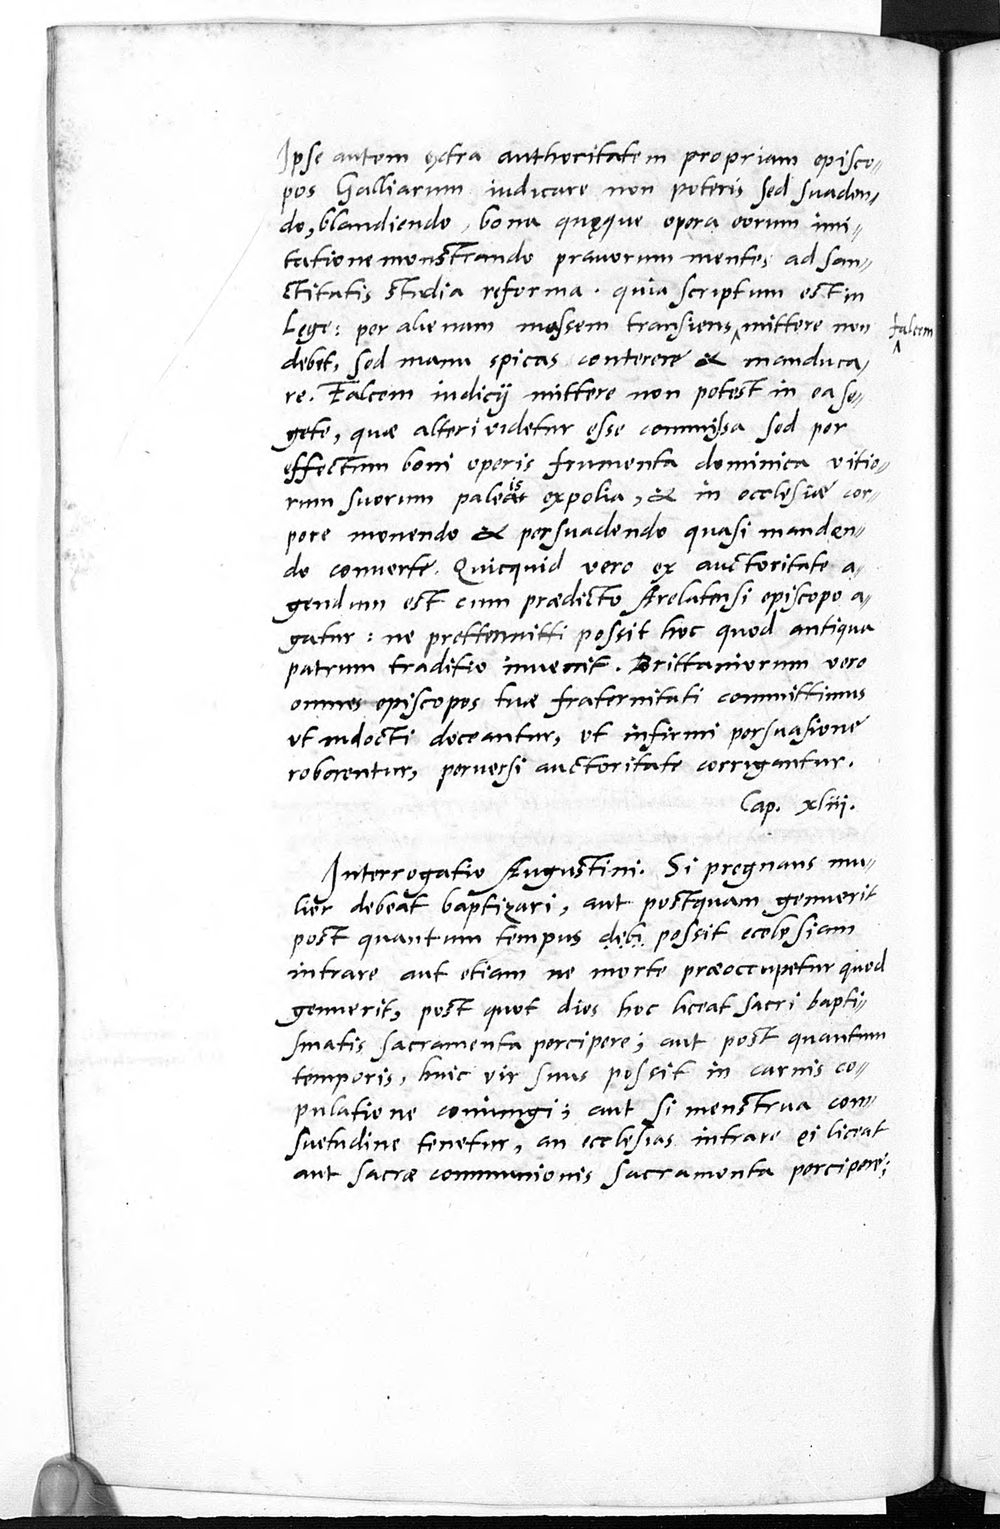 Ipse autem extra authoritatem propriam episco-
pos Galliarum iudicare non poteris sed suaden-
do, blandiendo, bona quęque opera eorum imi-
tatione monstrando prauorum mentes ad san-
ctitatis studia reforma. quia scriptum est in
Lege: per alienam messem transiens ^ mittere non ^ falcem
debet, sed manu spicas conterere & manduca-
re. Falcem iudicij mittere non potest in ea se-
gete, quæ alteri videtur esse commissa sed per
effectum boni operis frumenta dominica vitio-
rum suorum paleis expolia, & in ecclesiæ cor-
pore monendo & persuadendo quasi manden-
do conuerte. Quicquid vero ex auctoritate a-
gendum est cum prædicto Arelatensi episcopo a-
gatur: ne prettermitti possit hoc quod antiqua
patrum traditio inuenit. Brittaniorum vero
omnes episcopos tuæ fraternitati committimus
vt indocti doceantur, vt infirmi persuasione
roborentur, peruersi auctoritate corrigantur.
Cap. xliii.
Interrogatio Augustini. Si pręgnans mu-
lier debeat baptizari, aut postquam genuerit
post quantum tempus debi possit ecclesiam
intrare aut etiam ne morte præoccupetur quod
genuerit, post quot dies hoc liceat sacri bapti-
smatis sacramenta percipere; aut post quantum
temporis, huic vir suus possit in carnis co-
pulatione coniungi; aut si menstrua con-
suetudine tenetur, an ecclesias intrare ei liceat
aut sacræ communionis sacramenta percipere;